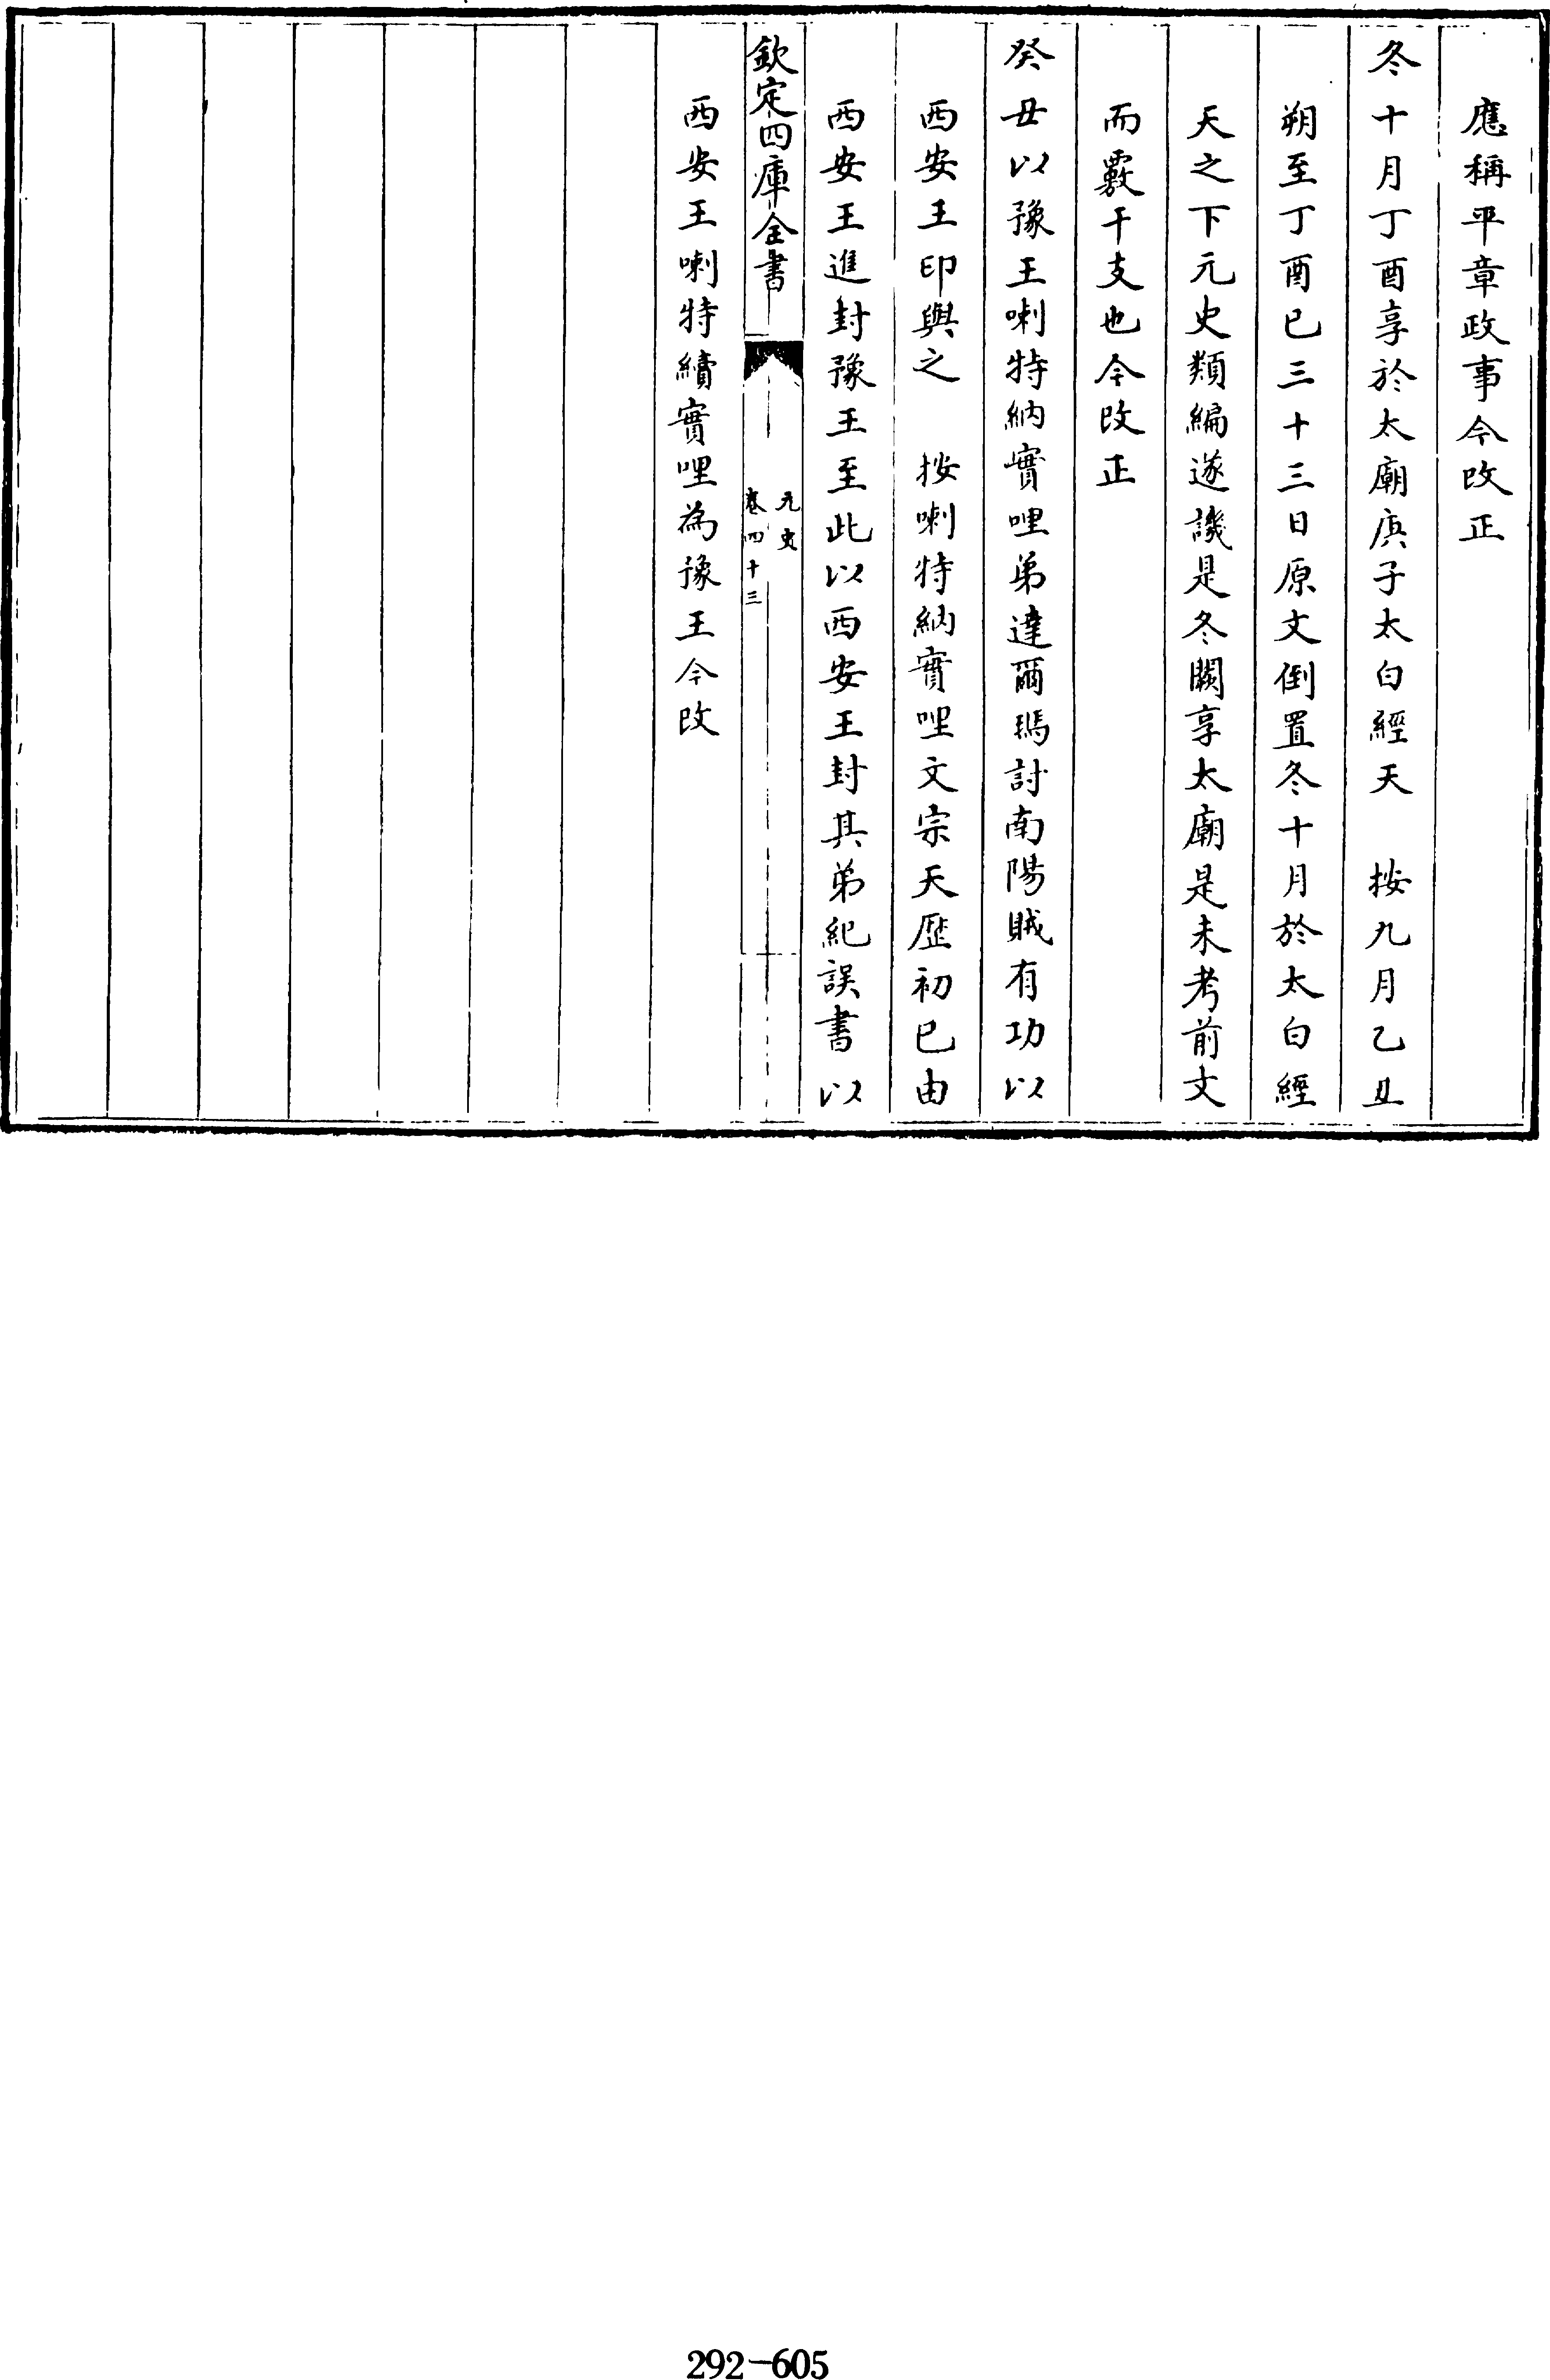 應稱平章政事今改正
冬十月丁酉享於太廟庚子太白經天　按九月乙丑
朔至丁酉已三十三日原文倒置冬十月於太白經
天之下元史類編遂譏是冬闕享太廟是未考前文
而覈干支也今改正
癸丑以豫王喇特納實哩弟達爾瑪討南陽賊有功以
西安王印與之　按喇特納實哩文宗天歷初已由
西安王進封豫王至此以西安王封其弟紀誤書以
欽定四庫全書
元史
卷四十三
西安王喇特續實哩為豫王今改
292-605